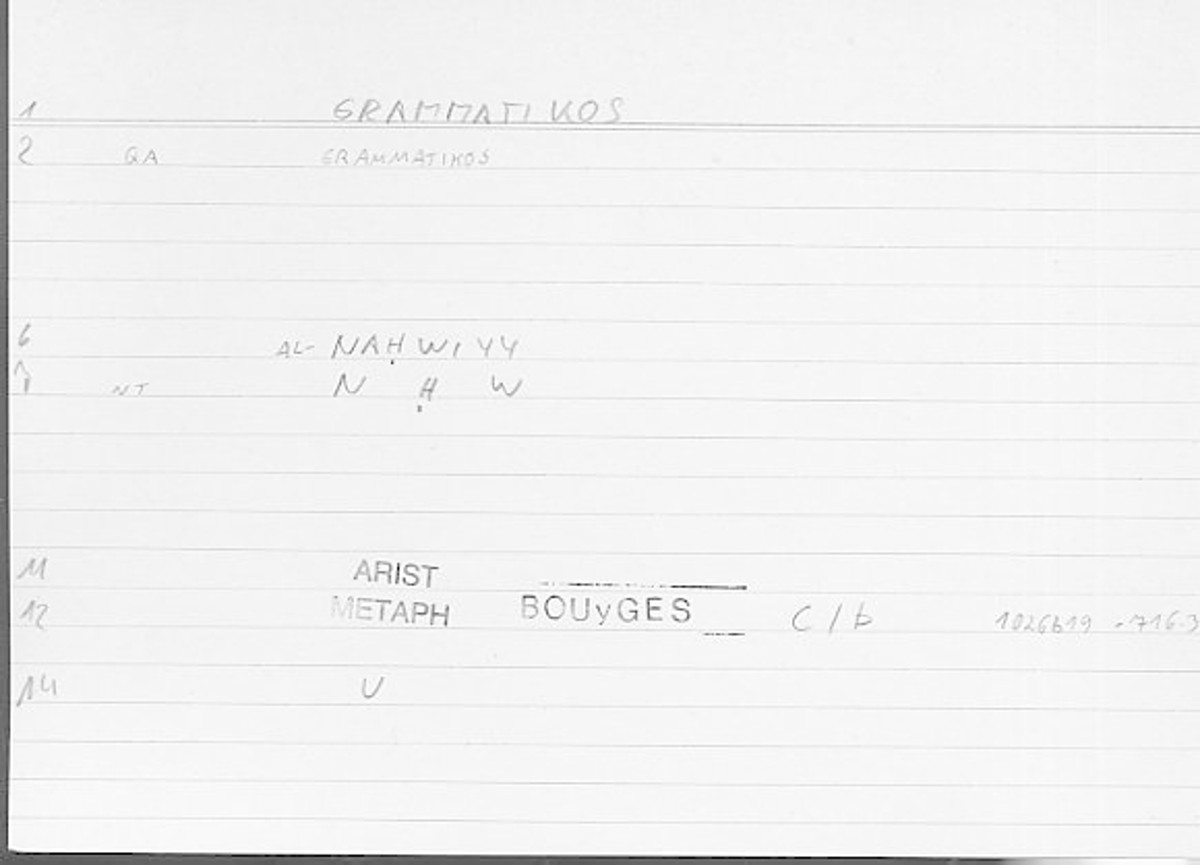 1 GRAMMATIKOS
2 QA GRAMMATIKOS
6 AL- NAḤWIYY
7 NT N Ḥ W
11 ARIST
12 METAPH BOUyGES C/b 1026b19 - 716.3
14 U